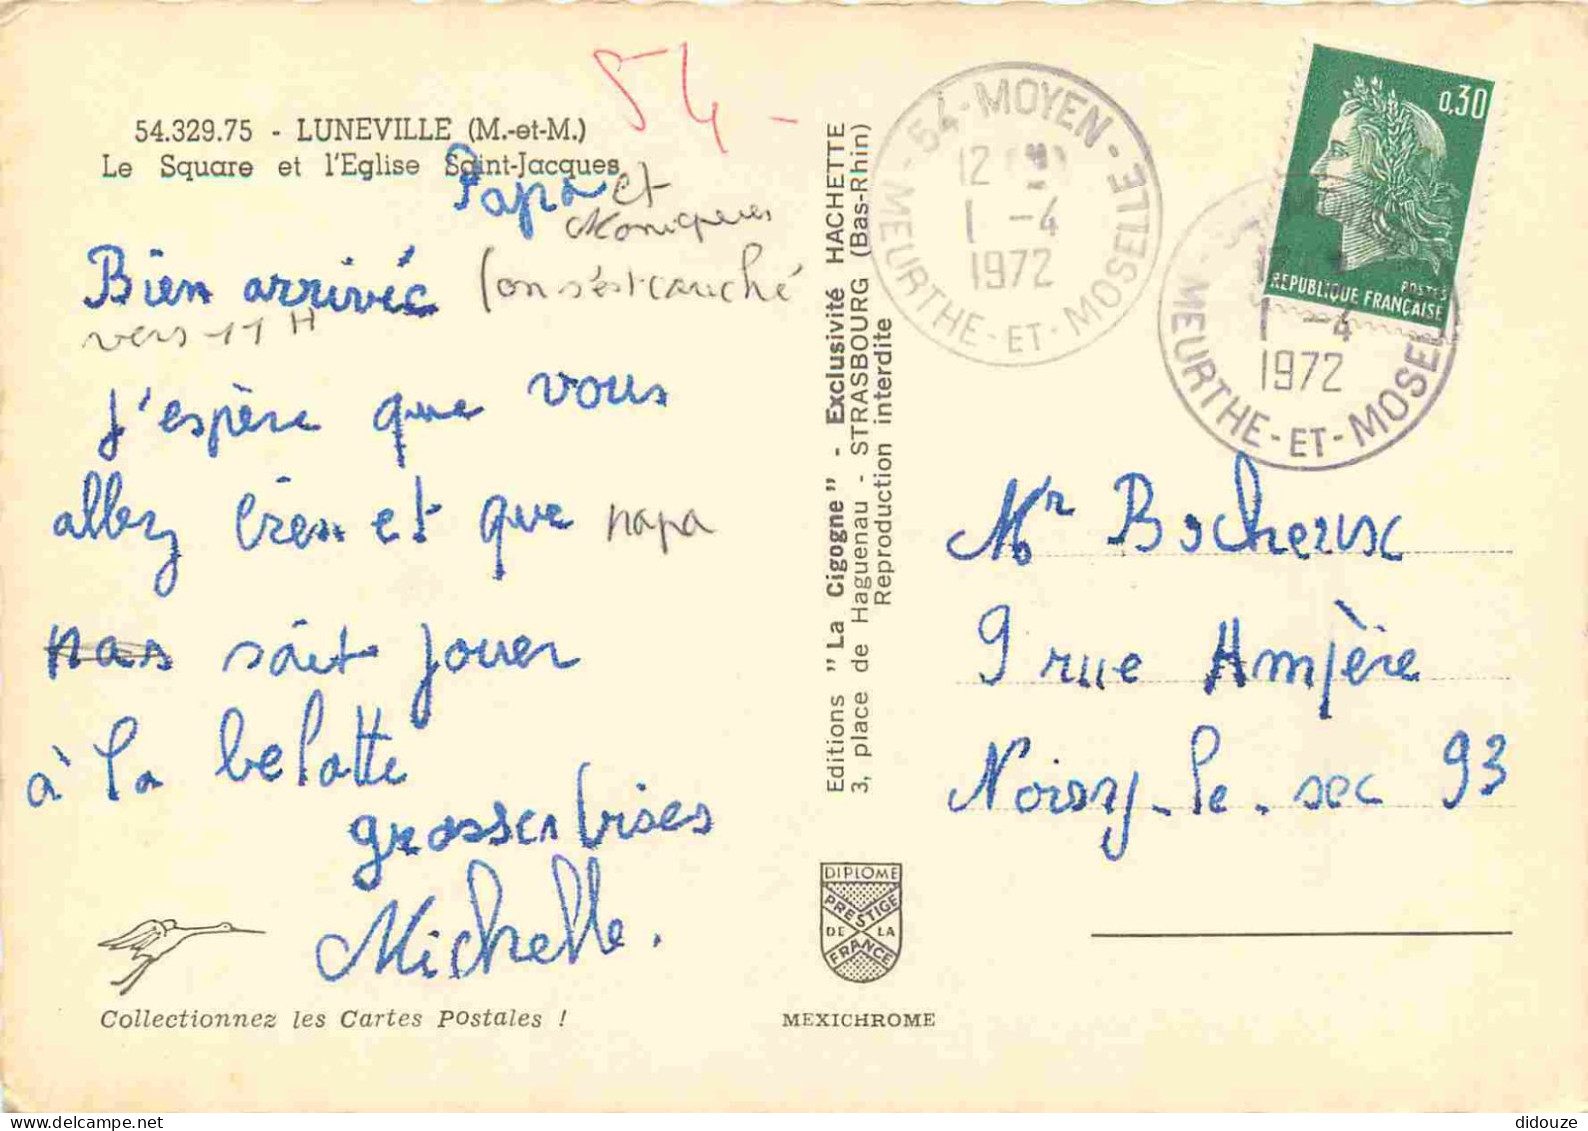 54.329.75 - LUNEVILLE (M.-et-M.)
Le Square et l'Eglise Saint-Jacques
54
Papa et
Bien arrivée (on s'est couché
vers 11 H
J'espère que vous
allez bien et que papa
sait jouer
à la belotte
grosses bises
Michelle.
Collectionnez les Cartes Postales !
Editions "La Cigogne" - Exclusivité HACHETTE
3, place de Haguenau - STRASBOURG (Bas-Rhin)
Reproduction interdite
DIPLOME
PRESTIGE
DE LA
FRANCE
MEXICHROME
54 - MOYEN -
12
1 - 4
1972
MEURTHE-ET-MOSELLE
0,30
POSTES
REPUBLIQUE FRANÇAISE
1 - 4
1972
MEURTHE-ET-MOSEL
Mr Bocheux
9 rue Ampère
Noisy-le-sec 93
didouze